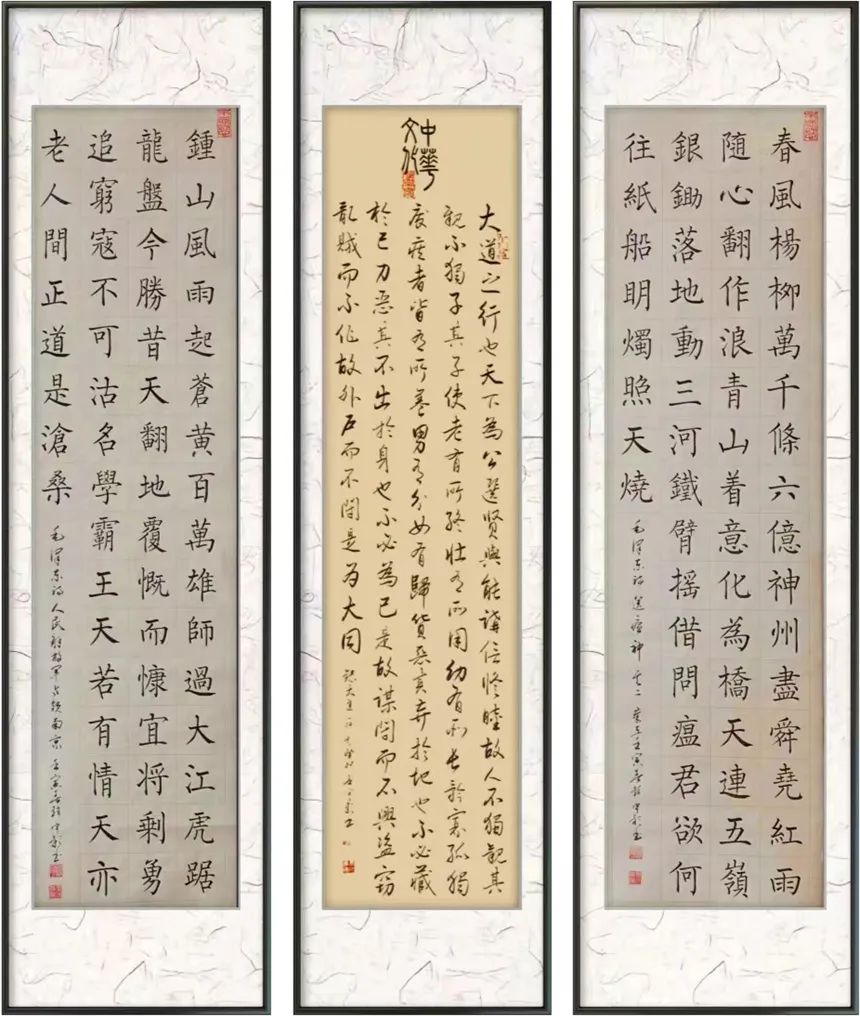 春風楊柳萬千條六億神州盡舜堯紅雨
隨心翻作浪青山着意化為橋天連五嶺
銀鋤落地動三河鐵臂搖借問瘟君欲何
往紙船明燭照天燒
毛澤東詩送瘟神其二
中華
文化
大道之行也天下為公選賢與能講信修睦故人不獨親其
親不獨子其子使老有所終壯有所用幼有所長矜寡孤獨
廢疾者皆有所養男有分女有歸貨惡其弃於地也不必藏
於己力惡其不出於身也不必為己是故謀閉而不興盜竊
亂賊而不作故外户而不閉是為大同
鍾山風雨起蒼黃百萬雄師過大江虎踞
龍盤今勝昔天翻地覆慨而慷宜將剩勇
追窮寇不可沽名學霸王天若有情天亦
老人間正道是滄桑
毛澤東詩人民解放軍占領南京 壬寅